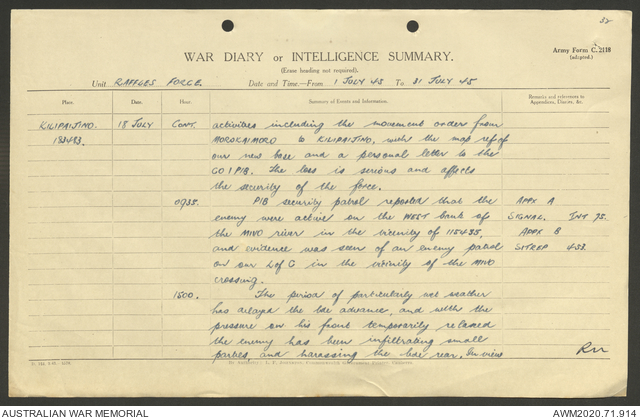 32
WAR DIARY or INTELLIGENCE SUMMARY.
Army Form C.2118
(adapted.)
(Erase heading not required).
Unit RAFFLES FORCE. Date and Time—From 1 JULY 45 To 31 JULY 45
Place. Date. Hour. Summary of Events and Information. Remarks and references to
Appendices, Diaries, &c.
KILIPAIJINO. 18 JULY CONT. activities including the movement order from
MOROKAIMORO to KILIPAIJINO, with the map ref of
our new base and a personal letter to the
CO 1 PIB. The loss is serious and affects
the security of the force.
0735. PIB security patrol reported that the APPX A
enemy were active on the WEST bank of SIGNAL. INT 75.
the MIVO river in the vicinity of 115485, APPX B
and evidence was seen of an enemy patrol SITREP 453.
on our L of C in the vicinity of the MIVO
crossing.
1500. The period of particularly wet weather
has delayed the bde advance, and with the
pressure on his front temporarily relaxed
the enemy has been infiltrating small
parties and harassing the bde rear. In view
AUSTRALIAN WAR MEMORIAL
AWM2020.71.914